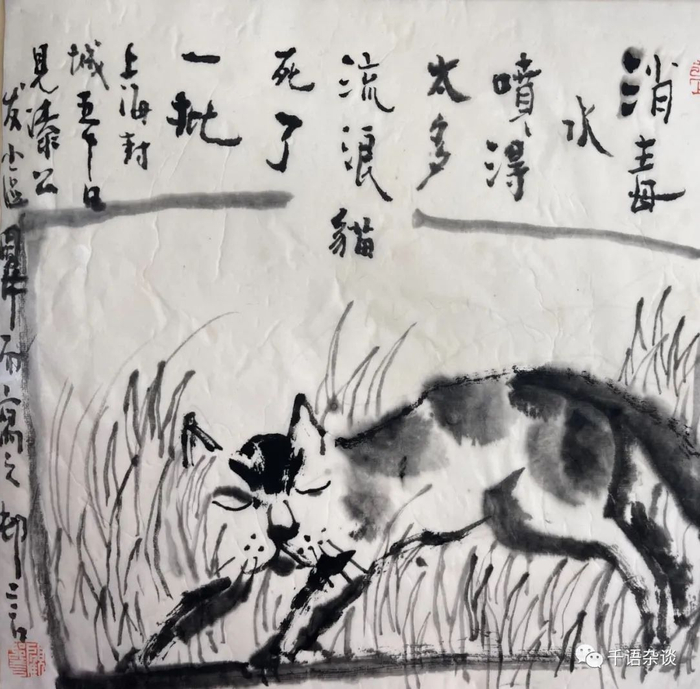 消毒
水
噴得
太多
流浪貓
死了
一批
上海封
城五十日
見公
发小區而寫之
千语杂谈